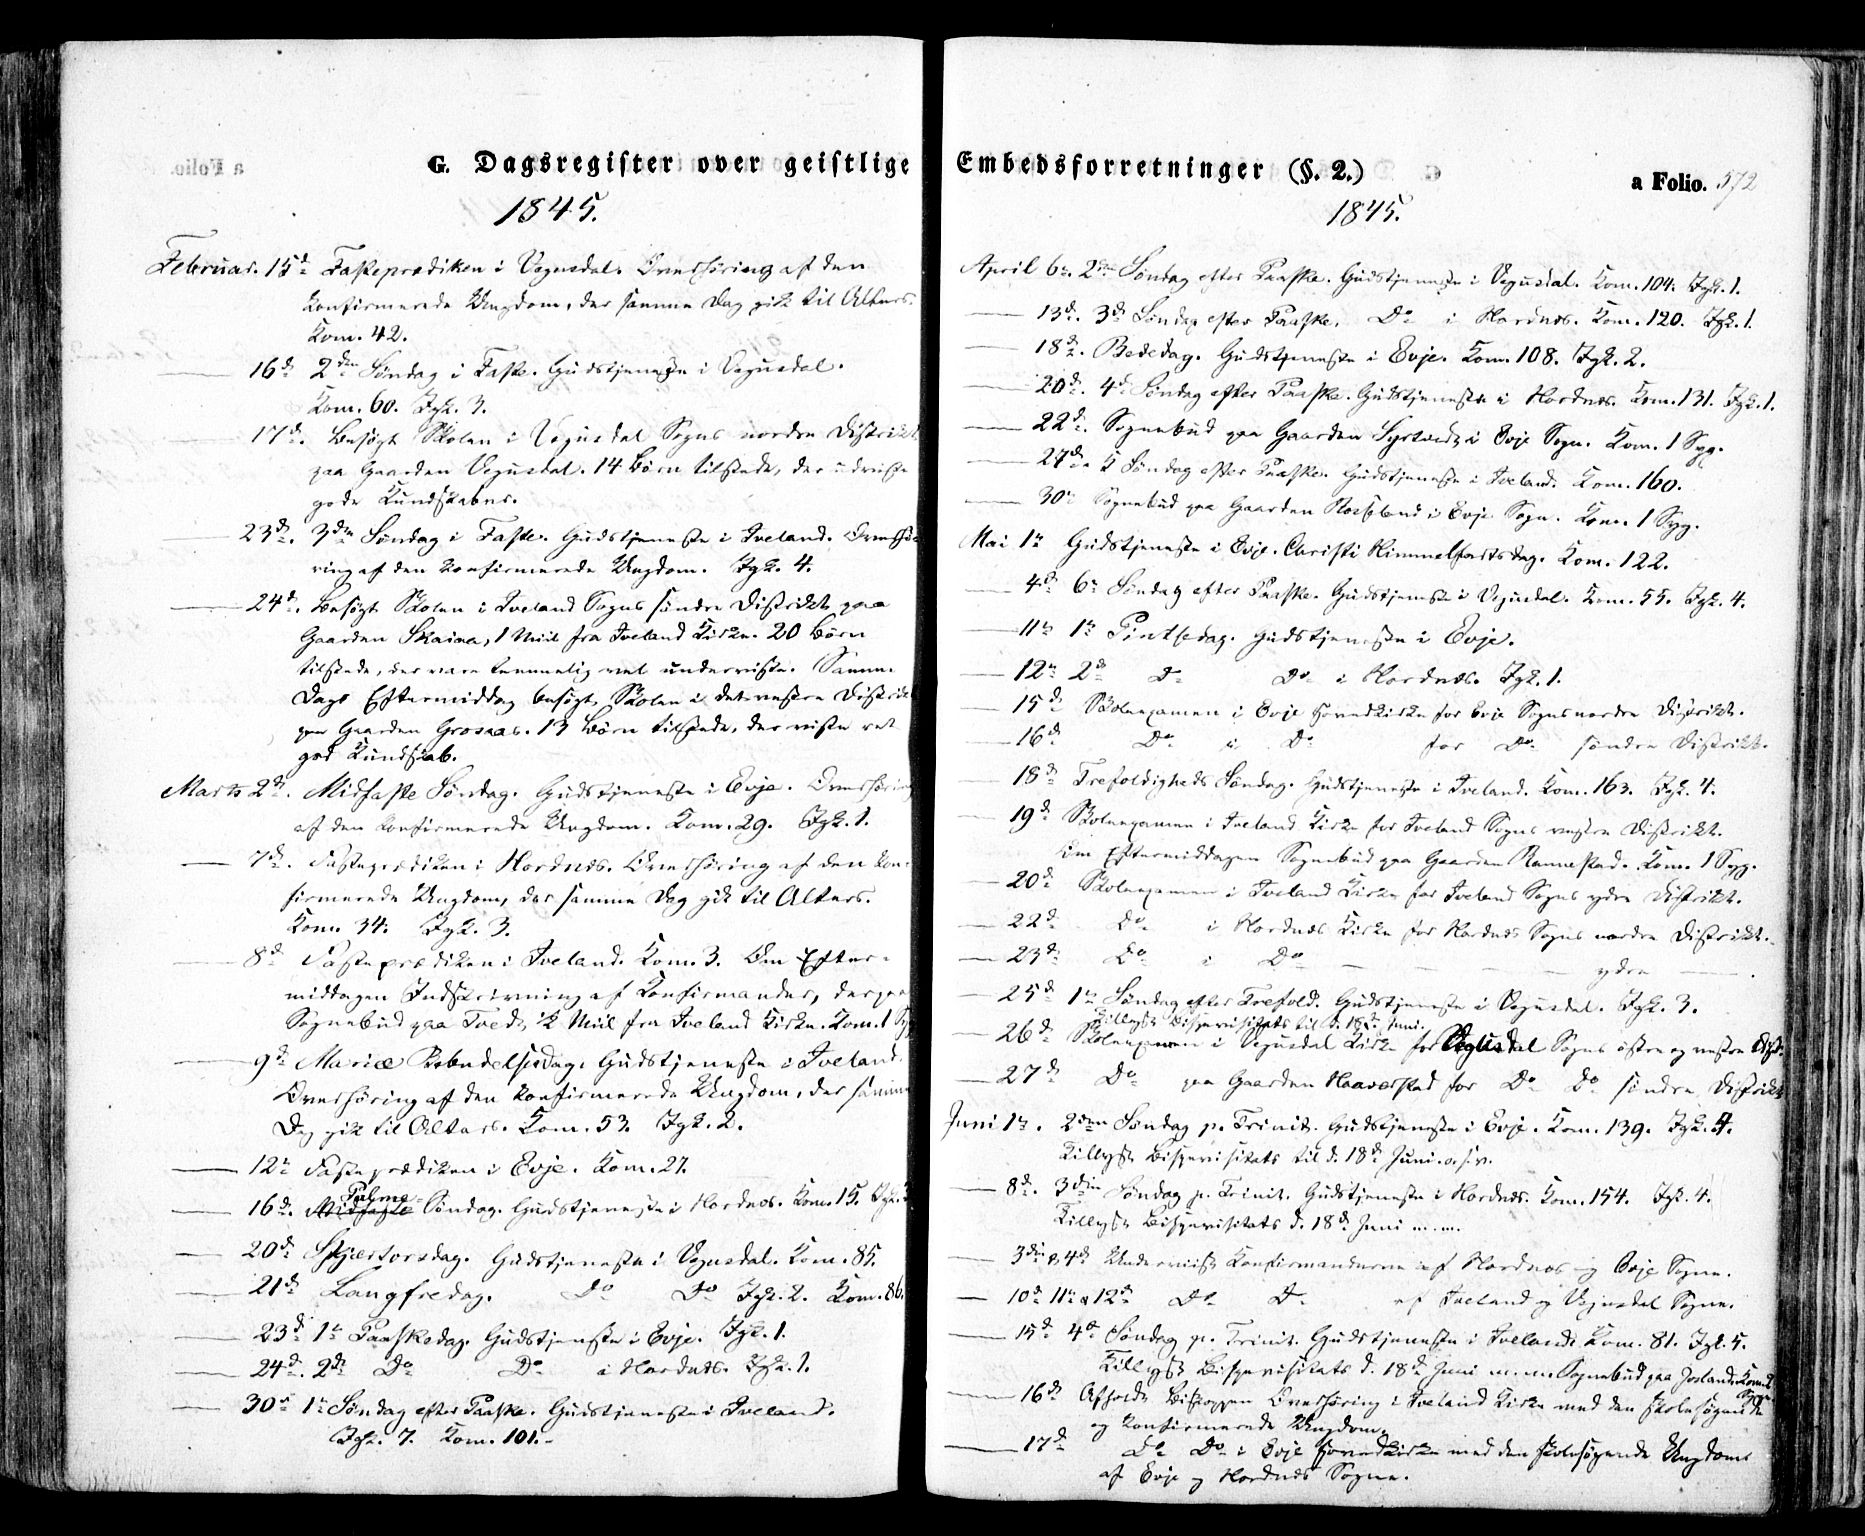 G. Dagsregister over geistlige
1845.
Februar. 15d Fasteprædiken i Vegusdal. Overhøring af den
Konfirmerede Ungdom, der samme Dag gik til Alters.
Kom. 42.
16d 2den Søndag i Faste. Gudstjeneste i Vegusdal.
Kom. 60. Igk. 3.
17d. Besøgt Skolen i Vegusdal Sogns nordre Distrikt
paa Gaarden Vegusdal. 14 Børn tilstede, der udviste
gode Kundskaber.
23d. 3den Søndag i Faste. Gudstjeneste i Iveland. Overhø-
ring af den konfirmerede Ungdom. Igk. 4.
24d. Besøgt Skolen i Iveland Sogns søndre Distrikt paa
Gaarden Skaiaa, 1 Miil fra Iveland Kirke. 20 Børn
tilstede, der vare temmelig vel underviste. Samme
Dags Eftermiddag besøgt Skolen i det vestre Distrikt
paa Gaarden Grosaas. 13 Børn tilstede, der viste ret
god Kundskab.
Marts 2d. Midfaste Søndag. Gudstjeneste i Evje. Overhøring
af den konfirmerede Ungdom. Kom. 29. Igk. 1.
7d. Fasteprædiken i Hordnæs. Overhøring af den kon-
firmerede Ungdom, der samme Dag gik til Alters.
Kom. 34. Igk. 3.
8d Fasteprædiken i Iveland. Kom. 3. Om Efter-
middagen Indskrivning af Konfirmander, derpaa
Sognebud paa Tveit, ½ Miil fra Iveland Kirke. Kom. 1 Syg
9d Mariæ Bebudelsesdag. Gudstjeneste i Iveland.
Overhøring af den konfirmerede Ungdom, der samme
Dag gik til Alters. Kom. 53. Igk. 2.
12te Fasteprædiken i Evje. Kom. 27.
16d. Midfaste Palme- Søndag. Gudstjeneste i Hordnæs. Kom. 15. Igk.
20d Skjærtorsdag. Gudstjeneste i Vegusdal. Kom. 85.
21d Langfredag. Do Do Igk. 2. Kom. 86.
23d 1te Paaskedag. Gudstjeneste i Evje. Igk. 1.
24d. 2de Do Do i Hordnæs. Igk. 1.
30te 1te Søndag efter Paaske. Gudstjeneste i Iveland.
Igk. 7. Kom. 101.
Embedsforretninger (§. 2.)
a Folio. 572
1845.
April 6te. 2den Søndag efter Paaske. Gudstjeneste i Vegusdal. Kom. 104. Igk. 1.
13d. 3d Søndag efter Paaske. Do i Hordnæs. Kom. 120. Igk. 1.
18d. Bededag. Gudstjeneste i Evje. Kom. 108. Igk. 2.
20d. 4d Søndag efter Paaske. Gudstjeneste i Hordnæs. Kom. 131. Igk. 1.
22d. Sognebud paa Gaarden i Evje Sogn. Kom. 1 Syg.
27d 5 Søndag efter Paaske. Gudstjeneste i Iveland. Kom. 160.
30te Sognebud paa Gaarden i Evje Sogn. Kom. 1 Syg.
Mai 1te Gudstjeneste i Evje. Christi Himmelfartsdag. Kom. 122.
4d 6te Søndag efter Paaske. Gudstjeneste i Vegusdal. Kom. 55. Igk. 4.
11te 1te Pintsedag. Gudstjeneste i Evje.
12te 2d Do Do i Hordnæs. Igk. 1.
15d Skoleexamen i Evje Hovedkirke for Evje Sogns nordre Distrikt.
16d Do i Do for Do søndre Distrikt.
18d Trefoldigheds Søndag. Gudstjeneste i Iveland. Kom. 163. Igk. 4.
19d Skoleexamen i Iveland Kirke for Iveland Sogns vestre Distrikt.
Om Eftermiddagen Sognebud paa Gaarden Rannestad. Kom. 1 Syg.
20d Skoleexamen i Iveland Kirke for Iveland Sogns ydre Distrikt.
22d Do i Hordnæs Kirke for Hordnæs Sogns nordre Distrikt.
23d Do i Do — — — — ydre —
25d 1te Søndag efter Trefold. Gudstjeneste i Vegusdal. Igk. 3.
Tillyst Bispevisitats til d. 18d Juni.
26d Skoleexamen i Vegusdal Kirke for Vegusdal Sogns østre og vestre Distr.
27d Do paa Gaarden Haaverstad for Do Do søndre Distrikt
Juni 1te. 2den Søndag p. Trinit. Gudstjeneste i Evje. Kom. 139. Igk. 4.
Tillyst Bispevisitats til d. 18d Juni o. s. v.
8d. 3die Søndag p. Trinit. Gudstjeneste i Hordnæs. Kom. 154. Igk. 4.
Tillyst Bispevisitats d. 18d Juni m. m.
3die & 4d Underviist Konfirmanderne af Hordnæs og Evje Sogne.
10d 11te & 12d Do Do af Iveland og Vegusdal Sogne.
15d 4d Søndag p. Trinit. Gudstjeneste i Iveland. Kom. 81. Igk. 5.
Tillyst Bispevisitats d. 18d Juni m. m. Sognebud paa Kom. 1 Syg.
16d Afholdt Biskoppen Overhøring i Iveland Kirke med den skolesøgende
og konfirmerede Ungdom.
17d Do Do i Evje Hovedkirke med den skolesøgende Ungdom
af Evje og Hordnæs Sogne.